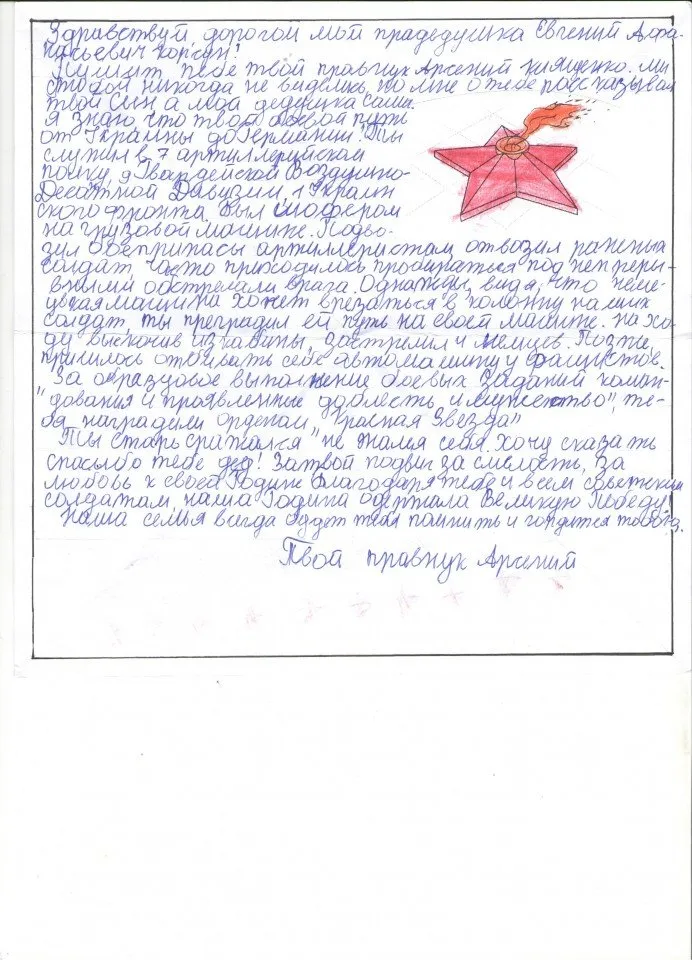 Здравствуй, дорогой мой прадедушка Евгений Афа-
насьевич Корсун!
Пишит тебе твой правнук Арсений Кнященко. Мы
стобой никогда не виделись, но мне о тебе рассказывал
твой Сын, а мой дедушка Саша.
Я знаю, что твой боевой путь
от Украины до Германии. Ты
служил в 7 артиллерийском
полку, 9 Гвардейской Воздушно-
Десатной Дивизии, 1 Украин
ского фронта. Был шофером
на грузовой машине. Подво-
зил боеприпасы артиллеристам, отвозил раненых
солдат, часто приходилось пробираться под непреры-
вными обстрелами врага. Однажды, видя, что неме-
цкая машина хочет врезаться в колонну наших
солдат, ты преградил ей путь на своей машине. На хо-
ду выскочив из кабины, застрелил 4 немцев. Позже,
пришлось отбивать себе автомашину у фашистов.
За образцовое выполнение боевых заданий коман-
"дования и проявленные доблесть и мужество", те-
бя наградили орденом "Красная Звезда"
Ты старь сражался "не жалея себя. Хочу сказать
спасибо тебе дед! За твой подвиг за смелость, за
любовь к своей Родине благодаря тебе и всем советским
солдатам, наша Родина одержала Великую Победу!
Наша семья всегда будет тебя помнить и гордится тобой.
Твой правнук Арсений